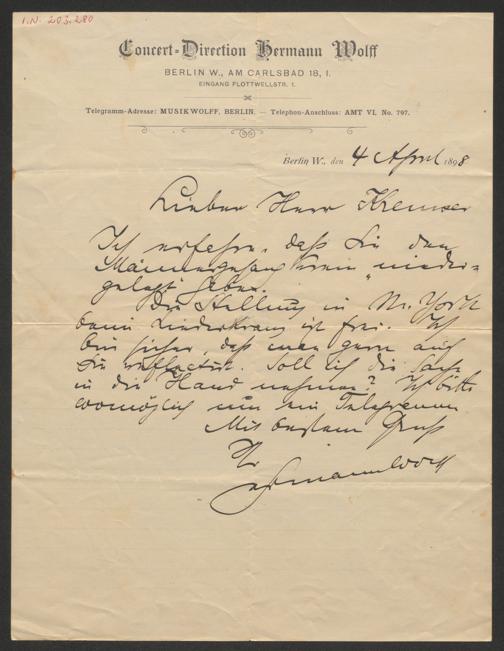 I.N. 203.280
Concert-Direction Hermann Wolff
BERLIN W., AM CARLSBAD 18, I.
EINGANG FLOTTWELLSTR. 1.
Telegramm-Adresse: MUSIKWOLFF, BERLIN. — Telephon-Anschluss: AMT VI, No. 797.
Berlin W., den 4 April 1898
Lieber Herr Kremser
Ich erfahre, daß Sie den
Männergesang Verein „nieder-
gelegt" haben.
Die Stellung in N. York
beim Liederkranz ist frei. Ich
bin sicher, daß man gern auf
Sie reflectirt. Soll ich die Sache
in die Hand nehmen? Ich bitte
womöglich um ein Telegramm
Mit bestem Gruß
Ihr
Hermann Wolff